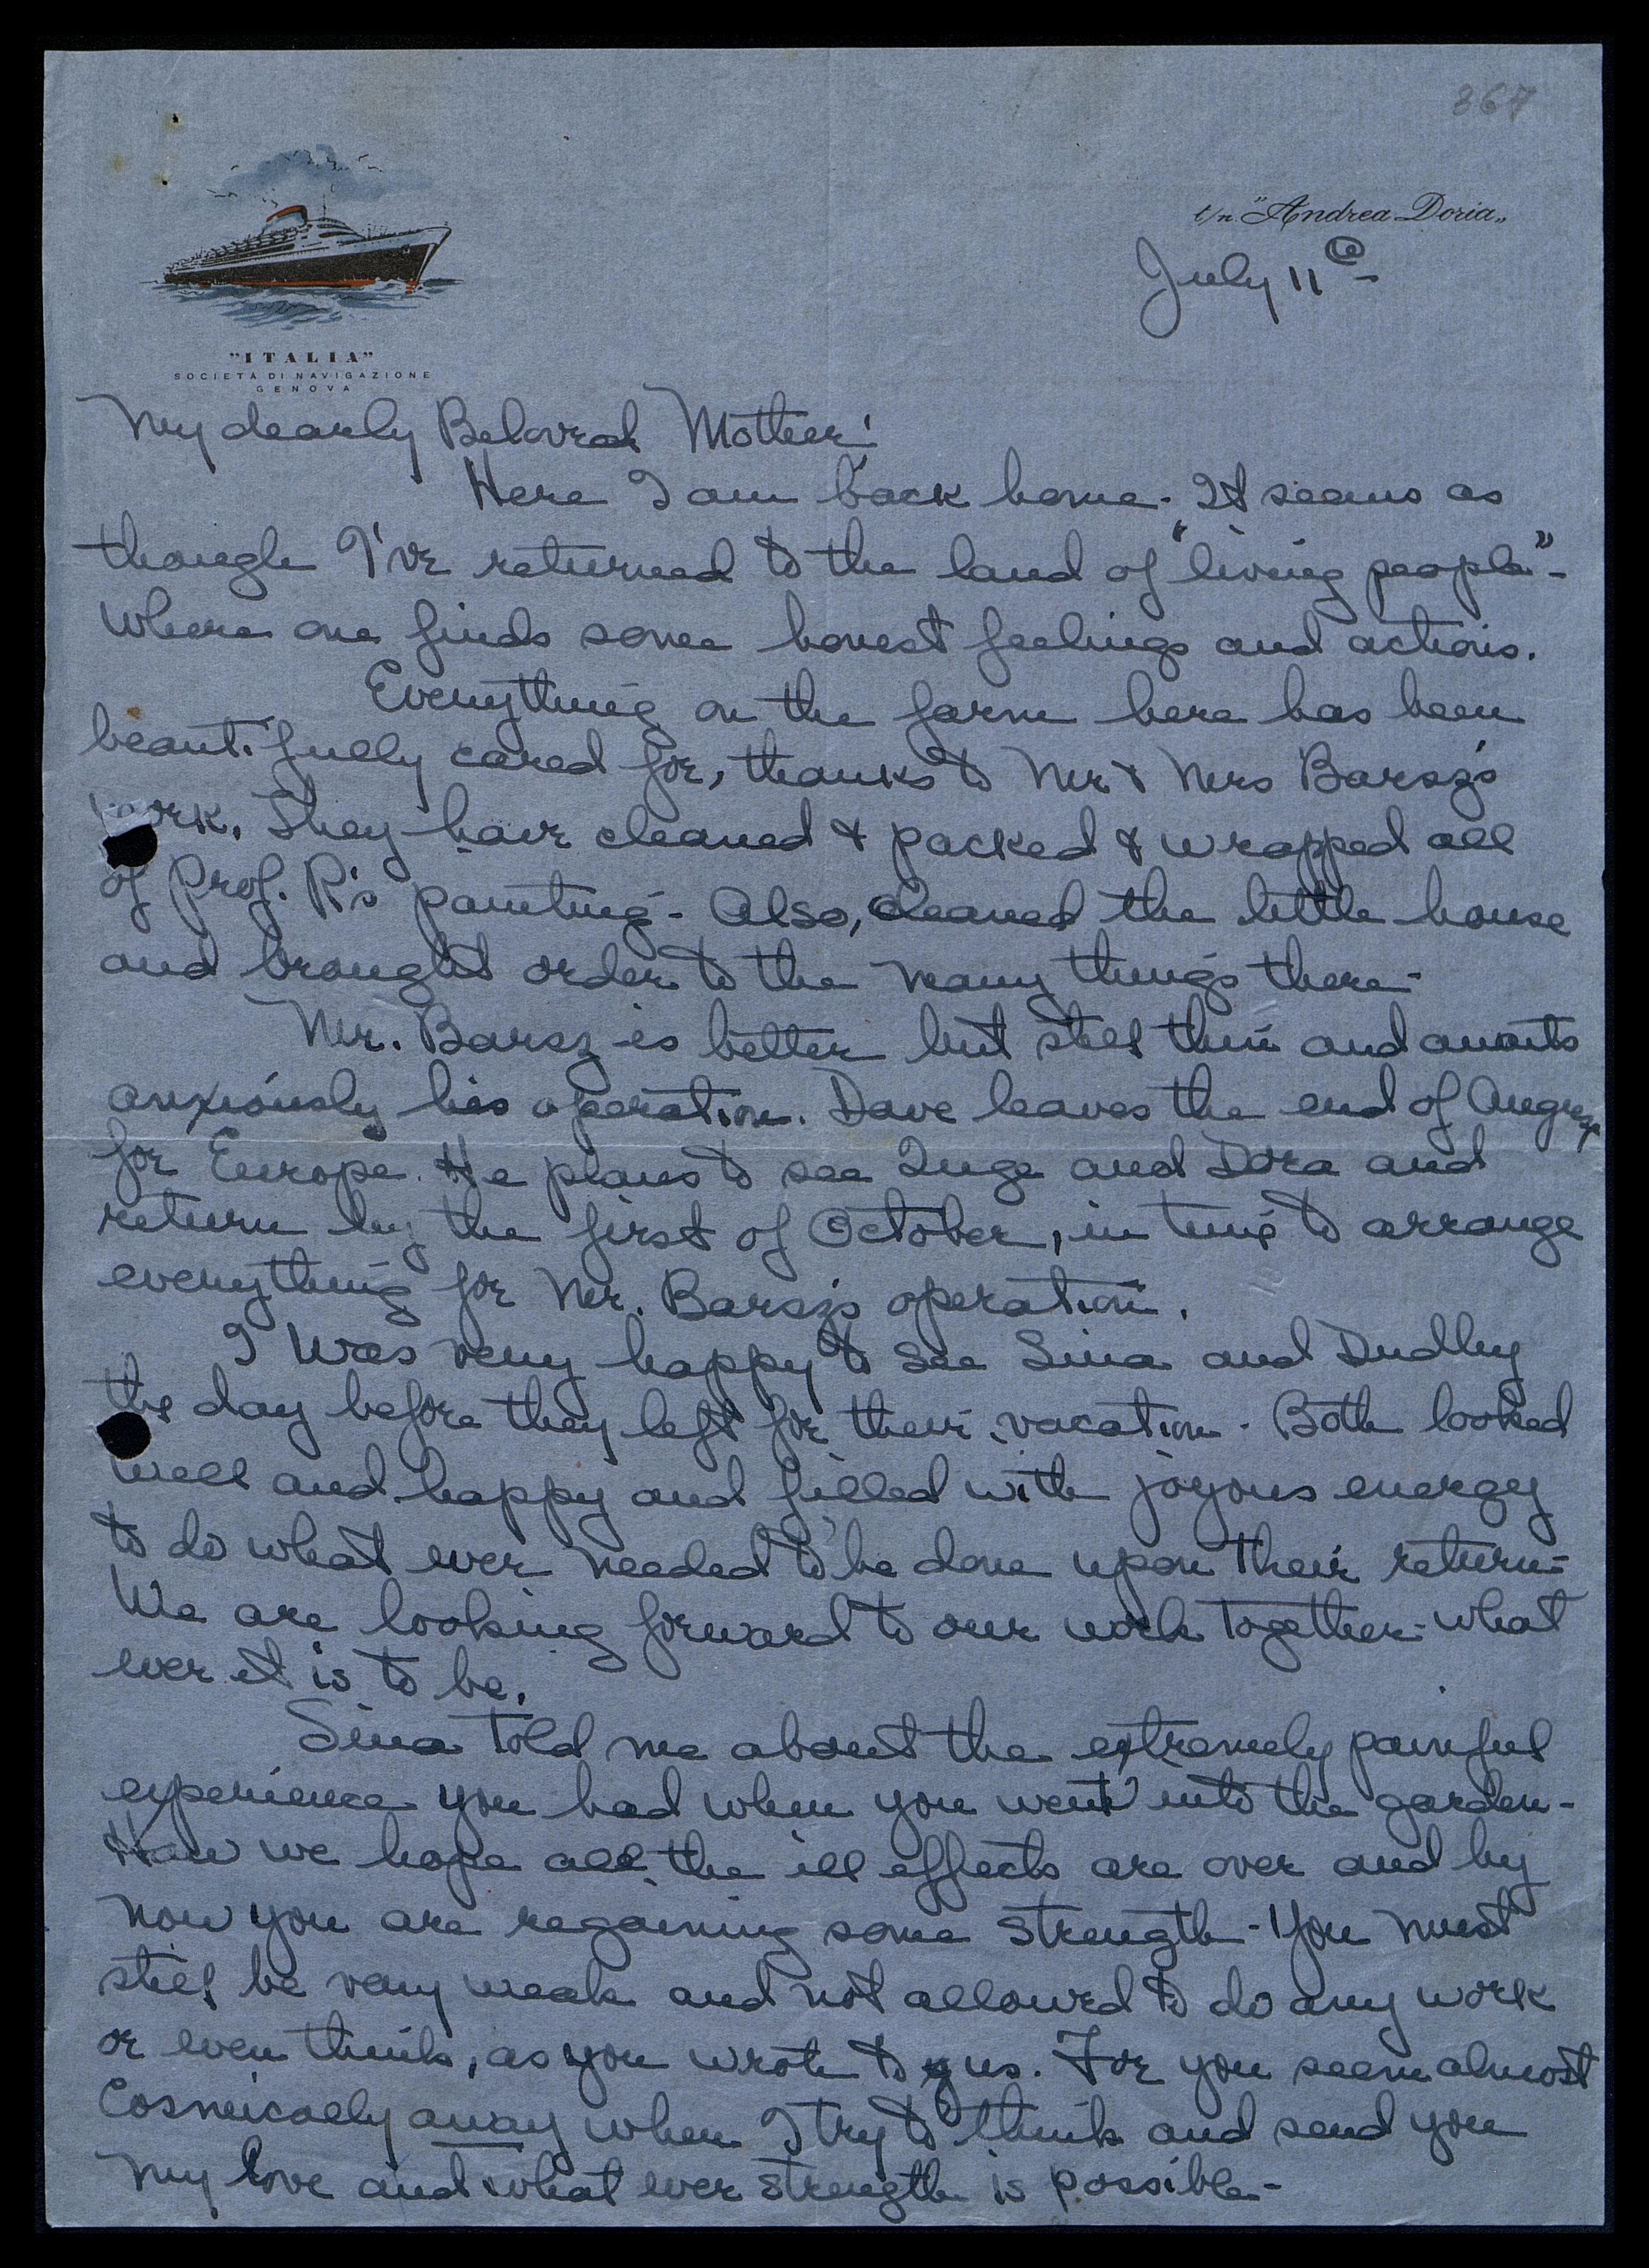 367
t/n "Andrea Doria"
July 11
"ITALIA"
SOCIETÀ DI NAVIGAZIONE
GENOVA
My dearly Beloved Mother:
Here I am back home - It seems as
though I've returned to the land of "living people" -
where one finds some honest feelings and actions.
Everything on the farm here has been
beautifully cared for, thanks to Mr & Mrs Barsz's
work. They have cleaned & packed & wrapped all
of Prof. R's painting - Also, cleaned the little house
and brought order to the many things there -
Mr. Barsz is better but still thin and awaits
anxiously his operation. Dave leaves the end of August
for Europe. He plans to see Inge and Dora and
return by the first of October, in time to arrange
everything for Mr. Barsz's operation.
I was very happy to see Sina and Dudley
the day before they left for their vacation - Both looked
well and happy and filled with joyous energy
to do what ever needed to be done upon their return -
We are looking forward to our work together - what
ever it is to be.
Sina told me about the extremely painful
experience you had when you went into the garden -
How we hope all the ill effects are over and by
now you are regaining some strength - You must
still be very weak and not allowed to do any work
or even think, as you wrote to us. For you seem almost
Cosmically away when I try to think and send you
my love and what ever strength is possible -